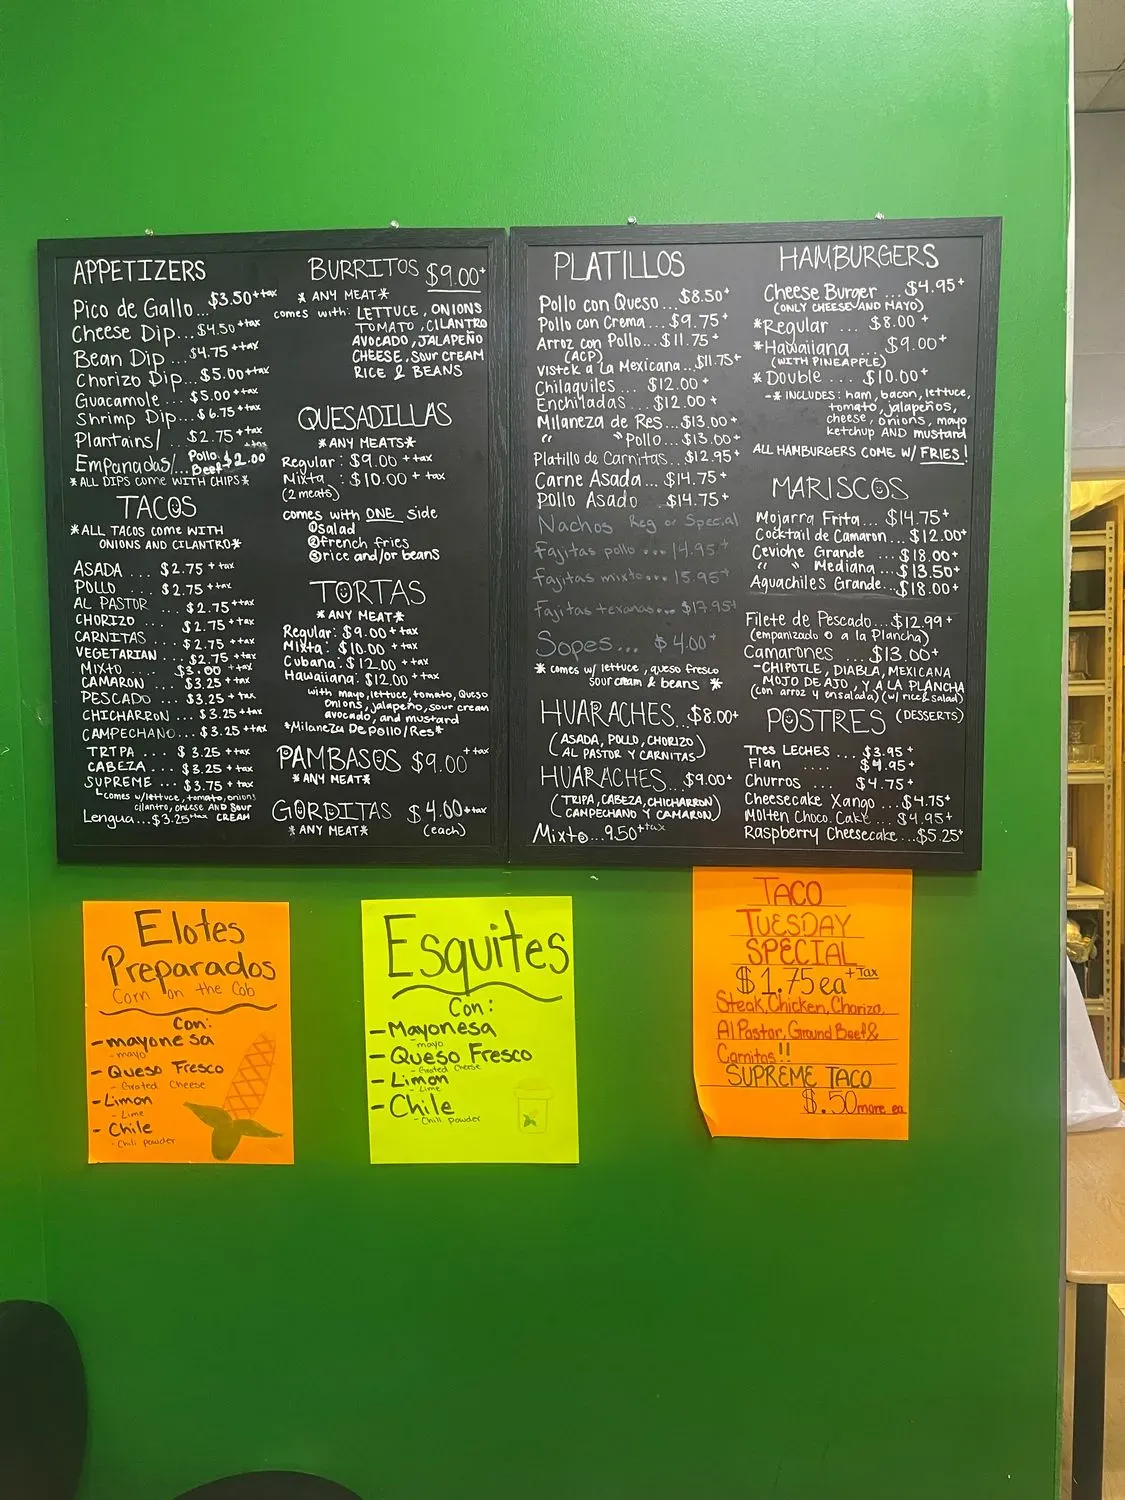 APPETIZERS
Pico de Gallo $3.50++tax
Cheese Dip... $4.50+tax
Bean Dip... $4.75++tax
Chorizo Dip... $5.00++tax
Guacamole... $5.00++tax
Shrimp Dip... $6.75++tax
Plantains/ ... $2.75++tax
Empanadas/... Pollo Beef $2.00
*ALL DIPS come WITH CHIPS*
TACOS
*ALL TACOS come WITH
ONIONS AND CILANTRO*
ASADA ... $2.75++tax
POLLO ... $2.75++tax
AL PASTOR ... $2.75++tax
CHORIZO ... $2.75++tax
CARNITAS ... $2.75
VEGETARIAN ... $2.75++tax
MIXTO ... $3.00++tax
CAMARON ... $3.25++tax
PESCADO ... $3.25
CHICHARRON ... $3.25++tax
CAMPECHANO .. $3.25++tax
TRIPA ... $3.25++tax
CABEZA ... $3.25++tax
SUPREME ... $3.75++tax
comes w/lettuce, tomato, onions
cilantro, cheese AND Sour
CREAM
Lengua...$3.25++tax
BURRITOS $9.00+
* ANY MEAT*
comes with: LETTUCE, ONIONS
TOMATO, CILANTRO
AVOCADO, JALAPEÑO
CHEESE, Sour CREAM
RICE & BEANS
QUESADILLAS
*ANY MEATS*
Regular: $9.00++tax
Mixta: $10.00++tax
(2 meats)
comes with ONE side
①Salad
②french fries
③rice and/or beans
TORTAS
*ANY MEAT*
Regular: $9.00++tax
Mixta: $10.00++tax
Cubana: $12.00++tax
Hawaiiana: $12.00++tax
with mayo, lettuce, tomato, Queso
Onions, jalapeño, sour cream
avocado, and mustard
*Milaneza De pollo/Res*
PAMBASOS $9.00++tax
*ANY MEAT*
GORDITAS $4.00++tax
*ANY MEAT* (each)
PLATILLOS
Pollo con Queso... $8.50+
Pollo con Crema... $9.75+
Arroz con Pollo... $11.75+
(ACP)
Vistek a La Mexicana... $11.75+
Chilaquiles ... $12.00+
Enchiladas ... $12.00+
Milaneza de Res...$13.00+
" " Pollo...$13.00+
Platillo de Carnitas... $12.95+
Carne Asada ... $14.75+
Pollo Asado ... $14.75+
Nachos Reg or Special
Fajitas pollo ... 14.95+
Fajitas mixto... 15.95+
Fajitas texanas... $17.95+
Sopes... $4.00+
*comes w/ lettuce, queso fresco
sour cream & beans *
HUARACHES...$8.00+
(ASADA, POLLO, CHORIZO
AL PASTOR Y CARNITAS)
HUARACHES... $9.00+
(TRIPA, CABEZA, CHICHARRON
CAMPECHANO Y CAMARON)
Mixto...9.50++tax
HAMBURGERS
Cheese Burger ... $4.95+
(ONLY CHEESE AND MAYO)
*Regular ... $8.00+
*Hawaiiana ... $9.00+
(WITH PINEAPPLE)
*Double .... $10.00+
-* INCLUDES: ham, bacon, lettuce,
tomato, jalapeños,
cheese, onions, mayo
ketchup AND mustard
ALL HAMBURGERS COME W/ FRIES!
MARISCOS
Mojarra Frita... $14.75+
Cocktail de Camaron... $12.00+
Ceviche Grande ... $18.00+
" " Mediana ...$13.50+
Aguachiles Grande...$18.00+
Filete de Pescado...$12.99+
(empanizado o a la Plancha)
Camarones ... $13.00+
-CHIPOTLE, DIABLA, MEXICANA
MOJO DE AJO, Y A LA PLANCHA
(con arroz y ensalada)(w/ rice & salad)
POSTRES (DESSERTS)
Tres LECHES ... $3.95+
Flan .... $4.95+
Churros ... $4.75+
Cheesecake Xango...$4.75+
Molten Choco. Cake... $4.95+
Raspberry Cheesecake...$5.25+
Elotes
Preparados
Corn on the Cob
Con:
-mayonesa
-mayo
-Queso Fresco
-Grated Cheese
-Limon
-Lime
-Chile
-Chili powder
Esquites
Con:
-Mayonesa
mayo
-Queso Fresco
-Grated Cheese
-Limon
-Lime
-Chile
-Chili powder
TACO
TUESDAY
SPECIAL
$1.75ea+Tax
Steak, Chicken, Chorizo,
Al Pastor, Ground Beef &
Carnitas!!
SUPREME TACO
$.50more ea